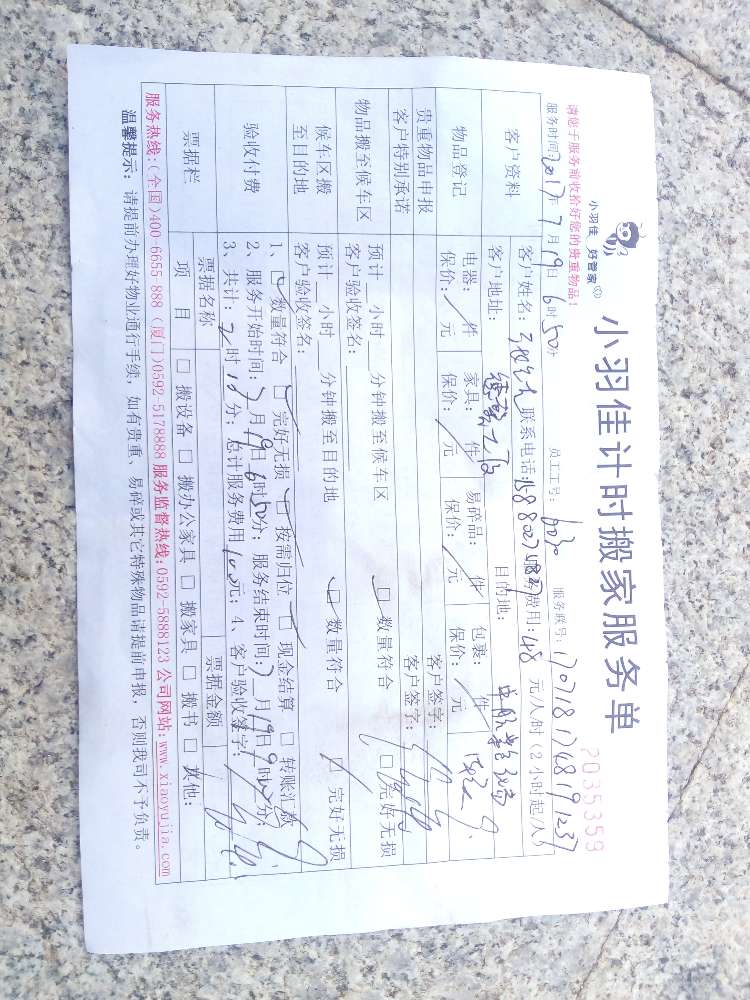 小羽佳 好管家
小羽佳计时搬家服务单
2035359
请您于服务前收拾好您的贵重物品！
服务时间：2017年7月19日6时50分 员工工号：6030 服务账号：
客户资料
客户姓名： 联系电话： 服务费用：48 元/人/时（2小时起/人）
客户地址： 目的地：
物品登记
电器：/件 家具：/件 易碎品：/件 包裹：/件
保价：/元 保价：/元 保价：/元 保价：/元
贵重物品申报 客户签字：
客户特别承诺 客户签字：
物品搬至候车区
预计__小时__分钟搬至候车区 □ 数量符合 □ 完好无损
客户验收签名：
候车区搬至目的地
预计__小时__分钟搬至目的地 □ 数量符合 □ 完好无损
客户验收签名：
验收付费
1、□ 数量符合 □ 完好无损 □ 按需归位 □ 现金结算 □ 转账汇款
2、服务开始时间：7月19日6时50分；服务结束时间：7月19日9时 分；
3、共计：2时 分；总计服务费用 元；4、客户验收签字：
票据栏
票据名称 票据金额
项目 □ 搬设备 □ 搬办公家具 □ 搬家具 □ 搬书 □ 其他：
服务热线：（全国）400-6655 888（厦门）0592-5178888 服务监督热线：0592-5888123 公司网站：www.xiaoyujia.com
温馨提示：请提前办理好物业通行手续，如有贵重、易碎或其它特殊物品请提前申报，否则我司不予负责。